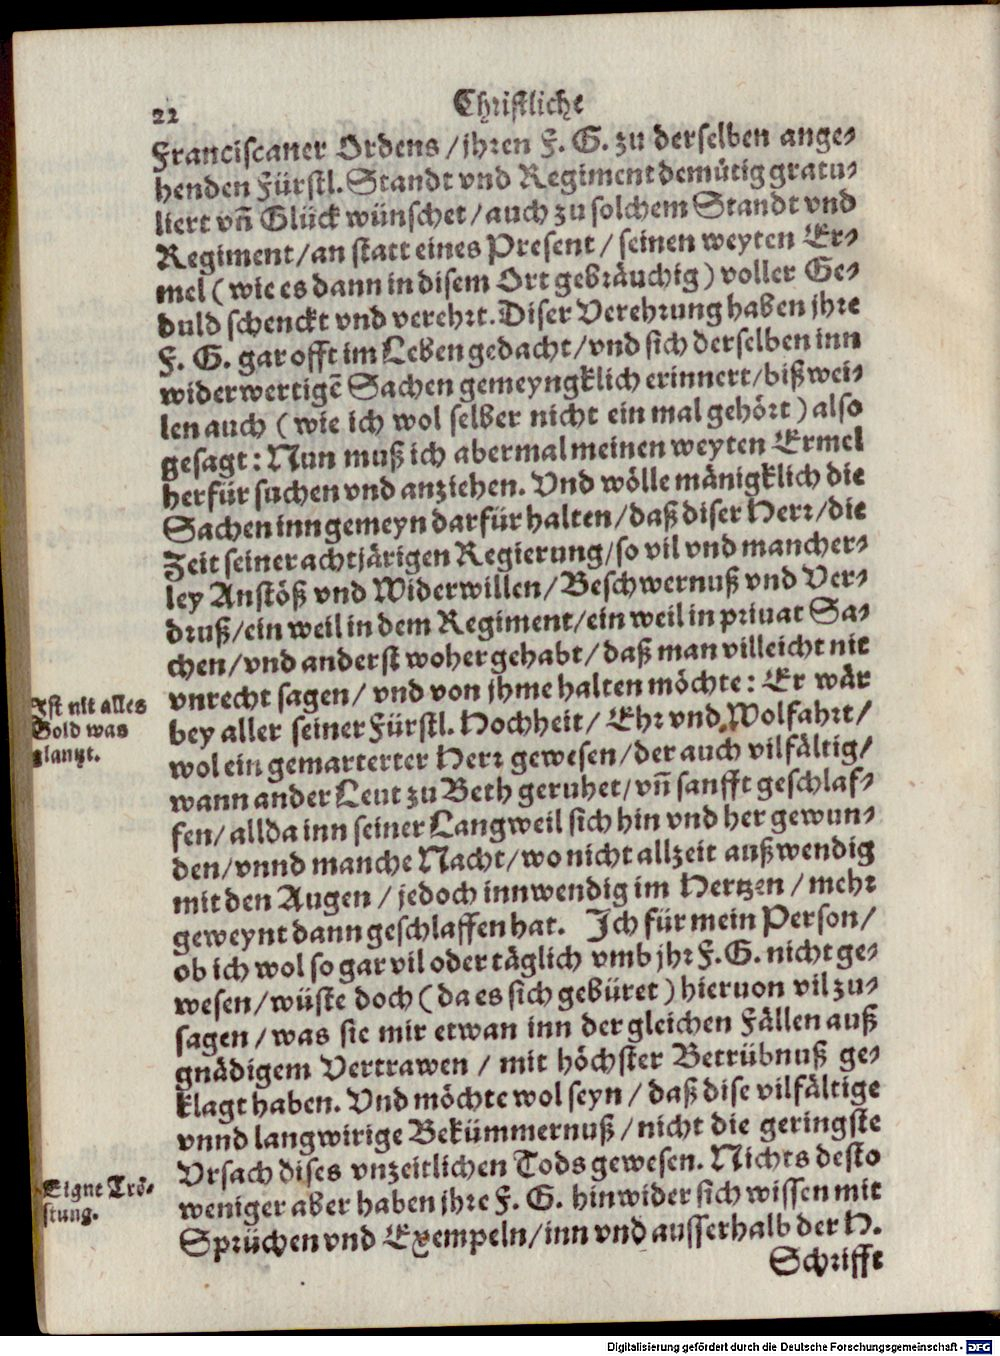 22
Christliche
Franciscaner Ordens / jhren F. G. zu derselben ange-
henden Fürstl. Standt vnd Regiment demütig gratu-
liert vñ Glück wünschet / auch zu solchem Standt vnd
Regiment / an statt eines Present / seinen weyten Er-
mel ( wie es dann in disem Ort gebräuchig ) voller Ge-
duld schenckt vnd verehrt. Diser Verehrung haben jhre
F. G. gar offt im Leben gedacht / vnd sich derselben inn
widerwertigẽ Sachen gemeyngklich erinnert / biß wei-
len auch ( wie ich wol selber nicht ein mal gehört ) also
gesagt: Nun muß ich abermal meinen weyten Ermel
herfür suchen vnd anziehen. Vnd wölle mänigklich die
Sachen inn gemeyn darfür halten / daß diser Herr / die
Zeit seiner achtjärigen Regierung / so vil vnd mancher-
ley Anstöß vnd Widerwillen / Beschwernuß vnd Ver-
druß / ein weil in dem Regiment / ein weil in priuat Sa-
chen / vnd anderst woher gehabt / daß man villeicht nit
vnrecht sagen / vnd von jhme halten möchte: Er wär
bey aller seiner Fürstl. Hochheit / Ehr vnd Wolfahrt /
wol ein gemarterter Herr gewesen / der auch vilfältig /
wann ander Leut zu Beth geruhet / vñ sanfft geschlaf-
fen / allda inn seiner Langweil sich hin vnd her gewun-
den / vnnd manche Nacht / wo nicht allzeit außwendig
mit den Augen / jedoch innwendig im Hertzen / mehr
geweynt dann geschlaffen hat. Ich für mein Person /
ob ich wol so gar vil oder täglich vmb jhr F. G. nicht ge-
wesen / wüste doch ( da es sich gebüret ) hieruon vil zu-
sagen / was sie mir etwan inn der gleichen Fällen auß
gnädigem Vertrawen / mit höchster Betrübnuß ge-
klagt haben. Vnd möchte wol seyn / daß dise vilfältige
vnnd langwirige Bekümmernuß / nicht die geringste
Vrsach dises vnzeitlichen Tods gewesen. Nichts desto
weniger aber haben jhre F. G. hinwider sich wissen mit
Sprüchen vnd Exempeln / inn vnd ausserhalb der H.
Schrifft
Ist nit alles
Gold was
glantzt.
Eigne Trö-
stung.
Digitalisierung gefördert durch die Deutsche Forschungsgemeinschaft - DFG